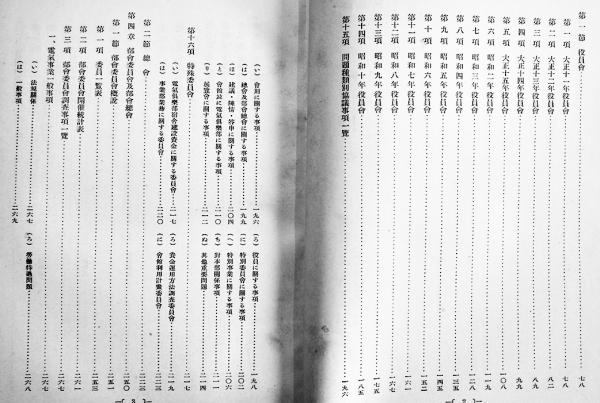 第一節 役員會
第一項 大正十一年役員會 七八
第二項 大正十二年役員會 八二
第三項 大正十三年役員會
第四項 大正十四年役員會
第五項 大正十五年役員會 九九
第六項 昭和二年役員會
第七項 昭和三年役員會
第八項 昭和四年役員會 一三五
第九項 昭和五年役員會
第十項 昭和六年役員會 一五二
第十一項 昭和七年役員會 一六一
第十二項 昭和八年役員會 一六七
第十三項 昭和九年役員會 一七五
第十四項 昭和十年役員會 一八五
第十五項 問題種類別協議事項一覽 一九六
(い) 會則に關する事項 一九六 (ろ) 役員に關する事項 一九八
(は) 總會及部會總會に關する事項 一九九 (に) 特別委員會に關する事項 二〇二
(ほ) 建議・陳情・答申に關する事項 二〇四 (へ) 特別事業に關する事項 二〇六
(と) 會館竝に電氣俱樂部に關する事項 二一〇 (ち) 對本部關係事項 二一一
(り) 展覽會に關する事項 二一二 (ぬ) 其他重要問題 二一四
第十六項 特殊委員會 二一七
(い) 電氣俱樂部宿舍建設資金に關する委員會 二一七 (ろ) 資金運用方法調査委員會 二一九
(は) 事業部業務に關する委員會 二二〇 (に) 會館利用計畫委員會 二二二
第二節 總會 二二三
第四章 部會委員會及部會總會 二五〇
第一節 部會委員會概說 二五一
第一項 委員一覽表 二五三
第二項 部會委員會開催統計表 二六一
第三項 部會委員會調査事項一覽 二六六
一、電氣事業一般事項 二六七
(い) 法規關係 二六七 (ろ) 勞働待遇問題 二六八
(は) 一般事項 二六九
2
3